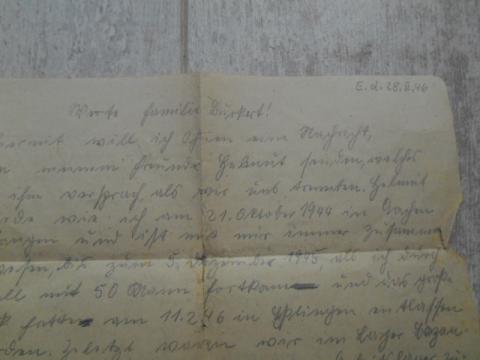 E. d. 28.II.46
Werte Familie Burkert!
hiermit will ich Ihnen eine Nachricht,
meinem Freunde Helmut senden, welches
ihm versprach, als wir uns trennten. Helmut
wie ich am 21. Oktober 1944 in Aachen
angen und ist mit mir immer zusammen
esen, bis zum 5. Dezember 1945, als ich durch
all mit 50 Mann fortkam und das große
hatte am 11.2.46 in Eßlingen entlassen
den. Zuletzt waren wir im Lager